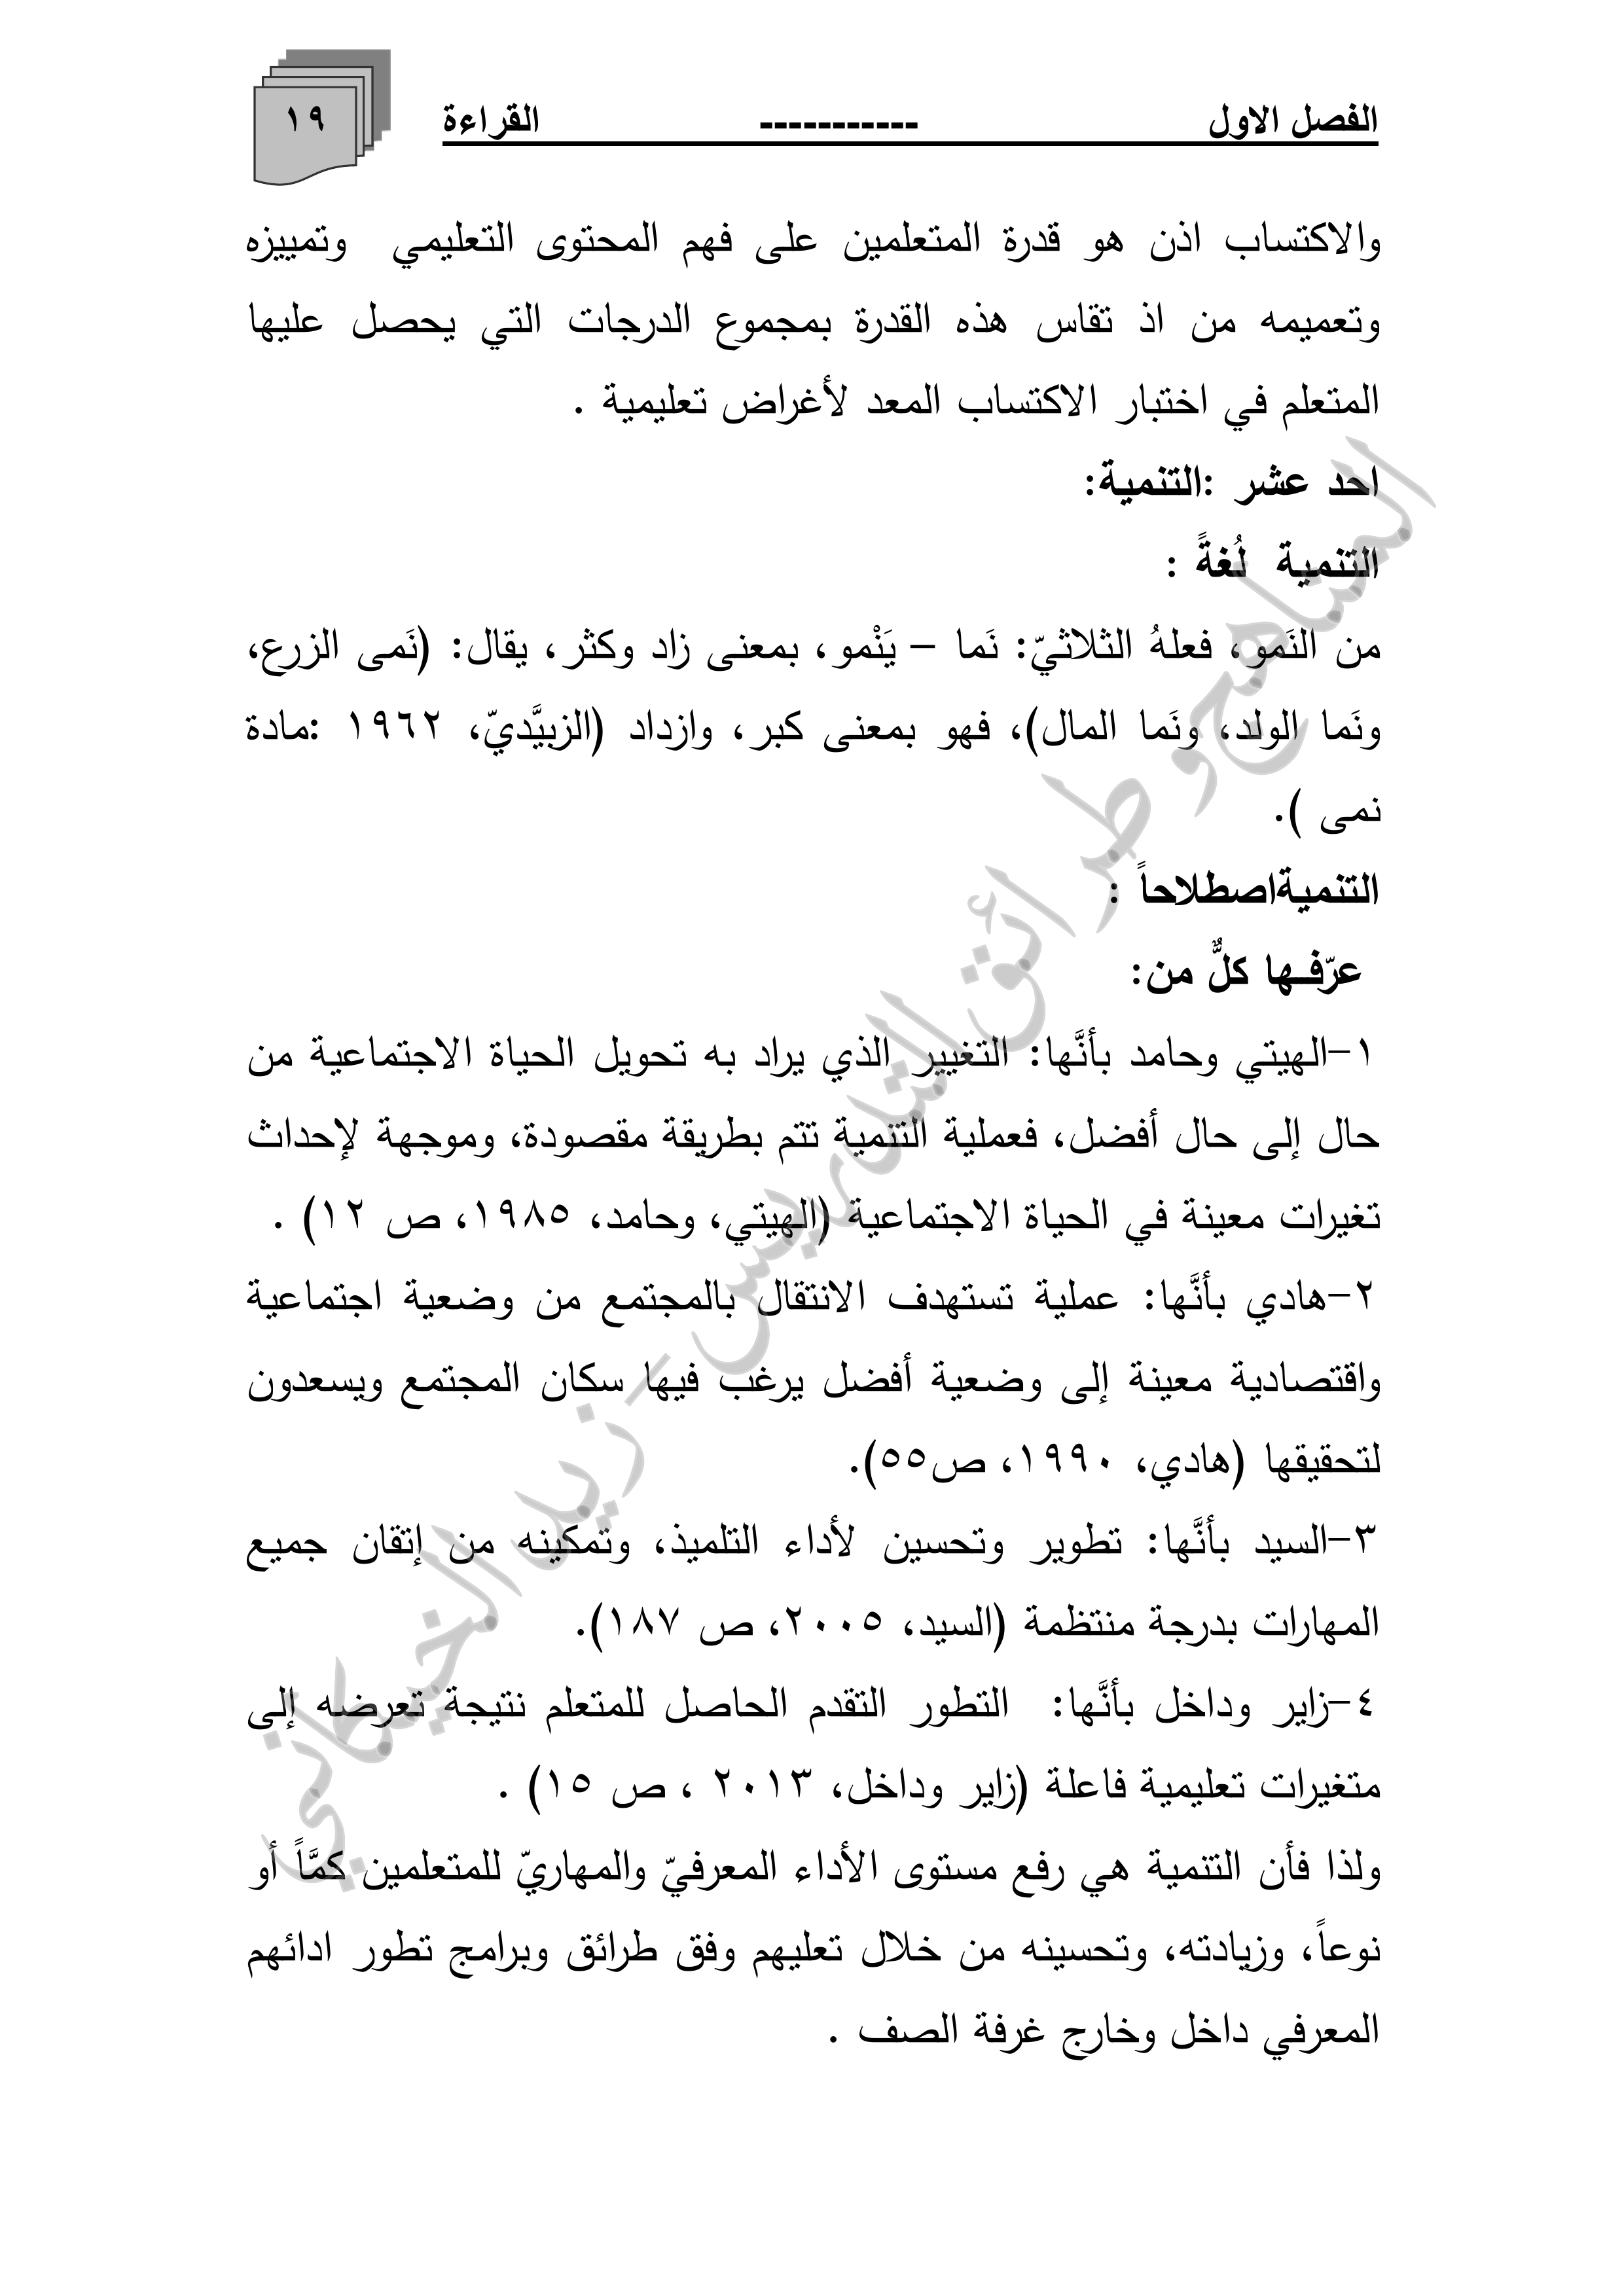 الفصل الاول ----------- القراءة
١٩
والاكتساب اذن هو قدرة المتعلمين على فهم المحتوى التعليمي وتمييزه
وتعميمه من اذ تقاس هذه القدرة بمجموع الدرجات التي يحصل عليها
المتعلم في اختبار الاكتساب المعد لأغراض تعليمية .
احد عشر :التنمية:
التنمية لُغةً :
من النَمو، فعلهُ الثلاثيّ: نَما – يَنْمو، بمعنى زاد وكثر، يقال: (نَمى الزرع،
ونَما الولد، ونَما المال)، فهو بمعنى كبر، وازداد (الزبيَّديّ، ١٩٦٢ :مادة
نمى ).
التنميةاصطلاحاً :
عرّفـها كلٌّ من:
١-الهيتي وحامد بأنَّها: التغيير الذي يراد به تحويل الحياة الاجتماعية من
حال إلى حال أفضل، فعملية التنمية تتم بطريقة مقصودة، وموجهة لإحداث
تغيرات معينة في الحياة الاجتماعية (الهيتي، وحامد، ١٩٨٥، ص ١٢) .
٢-هادي بأنَّها: عملية تستهدف الانتقال بالمجتمع من وضعية اجتماعية
واقتصادية معينة إلى وضعية أفضل يرغب فيها سكان المجتمع ويسعدون
لتحقيقها (هادي، ١٩٩٠، ص٥٥).
٣-السيد بأنَّها: تطوير وتحسين لأداء التلميذ، وتمكينه من إتقان جميع
المهارات بدرجة منتظمة (السيد، ٢٠٠٥، ص ١٨٧).
٤-زاير وداخل بأنَّها: التطور التقدم الحاصل للمتعلم نتيجة تعرضه إلى
متغيرات تعليمية فاعلة (زاير وداخل، ٢٠١٣ ، ص ١٥) .
ولذا فأن التنمية هي رفع مستوى الأداء المعرفيّ والمهاريّ للمتعلمين كمَّاً أو
نوعاً، وزيادته، وتحسينه من خلال تعليهم وفق طرائق وبرامج تطور ادائهم
المعرفي داخل وخارج غرفة الصف .
المناهج وطرائق التدريس - زيد الخيكاني